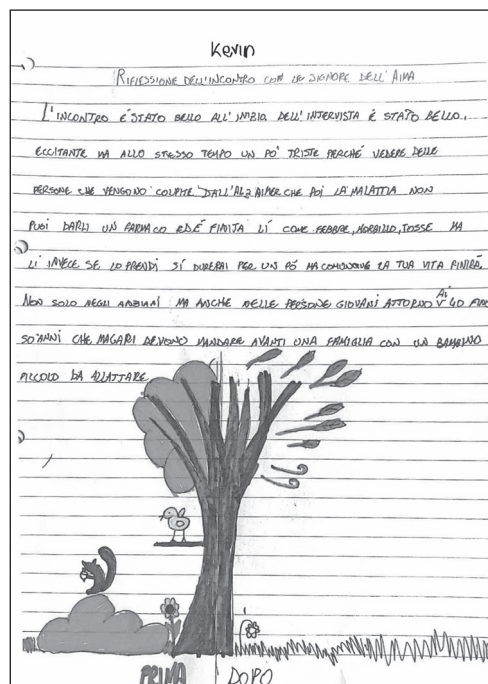 Kevin
RIFLESSIONE DELL'INCONTRO CON LE SIGNORE DELL'AIMA
L'INCONTRO È STATO BELLO ALL'INIZIA DELL'INTERVISTA È STATO BELLO,
ECCITANTE MA ALLO STESSO TEMPO UN PO' TRISTE PERCHÉ VEDERE DELLE
PERSONE CHE VENGONO COLPITE DALL'ALZAIPER CHE POI LA MALATTIA NON
PUOI DARLI UN FARMACO ED È FINITA LÌ COME FEBBRE, MORBILLO, TOSSE MA
LÌ INVECE SE LO PRENDI SÌ DURERAI PER UN PÓ MA COMUNQUE LA TUA VITA FINIRÀ.
NON SOLO NEGLI ANZIANI MA ANCHE DELLE PERSONE GIOVANI ATTORNO AI 40 FINO
50 ANNI CHE MAGARI DEVONO MANDARE AVANTI UNA FAMIGLIA CON UN BAMBINO
PICCOLO DA ALLATTARE
PRIMA DOPO